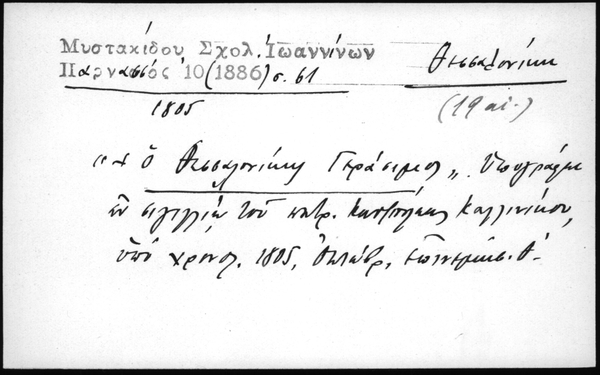 Μυστακίδου Σχολ. Ἰωαννίνων
Παρνασσός 10 (1886) σ. 61
Θεσσαλονίκη
1805
(19 αἰ.)
"+ ὁ Θεσσαλονίκης Γεράσιμος" ὑπογράφει
ἐν σιγιλλίῳ τοῦ πατρ. Καλλινίκου,
ὑπό χρονολ. 1805, Ἰνδ. Θ΄